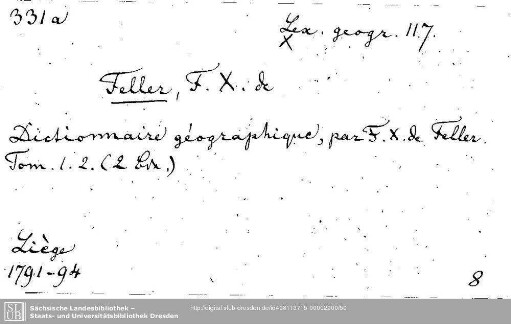 331a
Lex. geogr. 117.
X
Feller, F. X. de
Dictionnaire géographique, par F. X. de Feller.
Tom. 1. 2. (2 Bde.)
Liège
1791-94
8
SLUB
Sächsische Landesbibliothek –
Staats- und Universitätsbibliothek Dresden